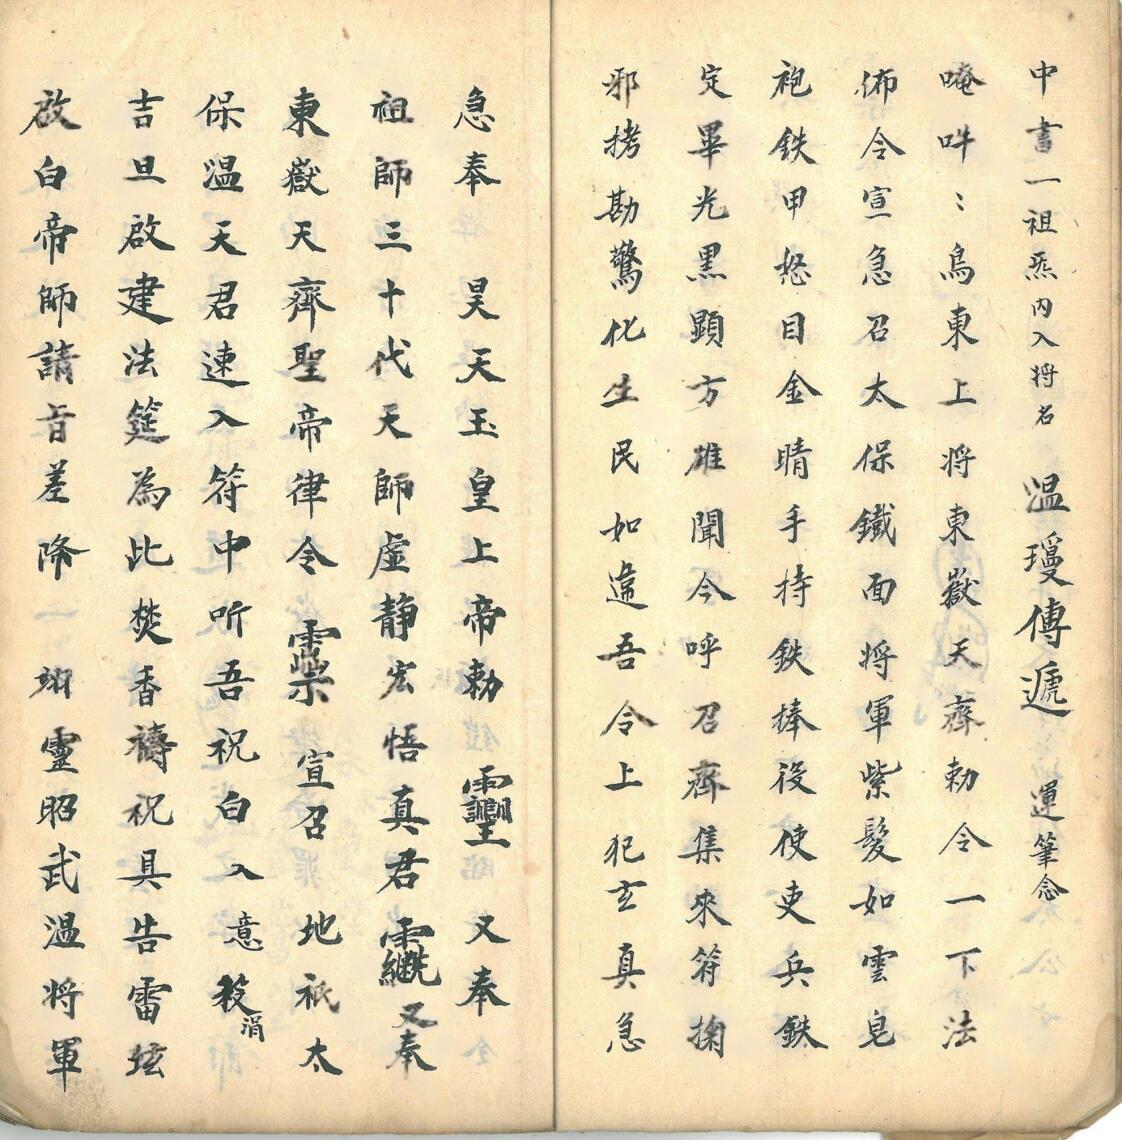 中書一祖炁內入将名 温瓊傅遞 運筆念
唵吽〻烏東上将東嶽天齊勅令一下法
佈令宣急召太保鐵面将軍紫髮如雲皂
袍鉄甲怒目金睛手持鉄捧役使吏兵鉄
定畢光黑顕方雄聞令呼召齊集來符掬
邪拷勘驚化生民如違吾令上犯玄真急
急奉 昊天玉皇上帝勅 又奉
祖師三十代天師虛静宏悟真君 又奉
東嶽天齊聖帝律令 宣召 地祇太
保温天君速入符中听吾祝白入意 涓
吉旦啟建法筵為比焚香禱祝具告雷坛
啟白帝師請旨差降一 翊靈昭武温将軍